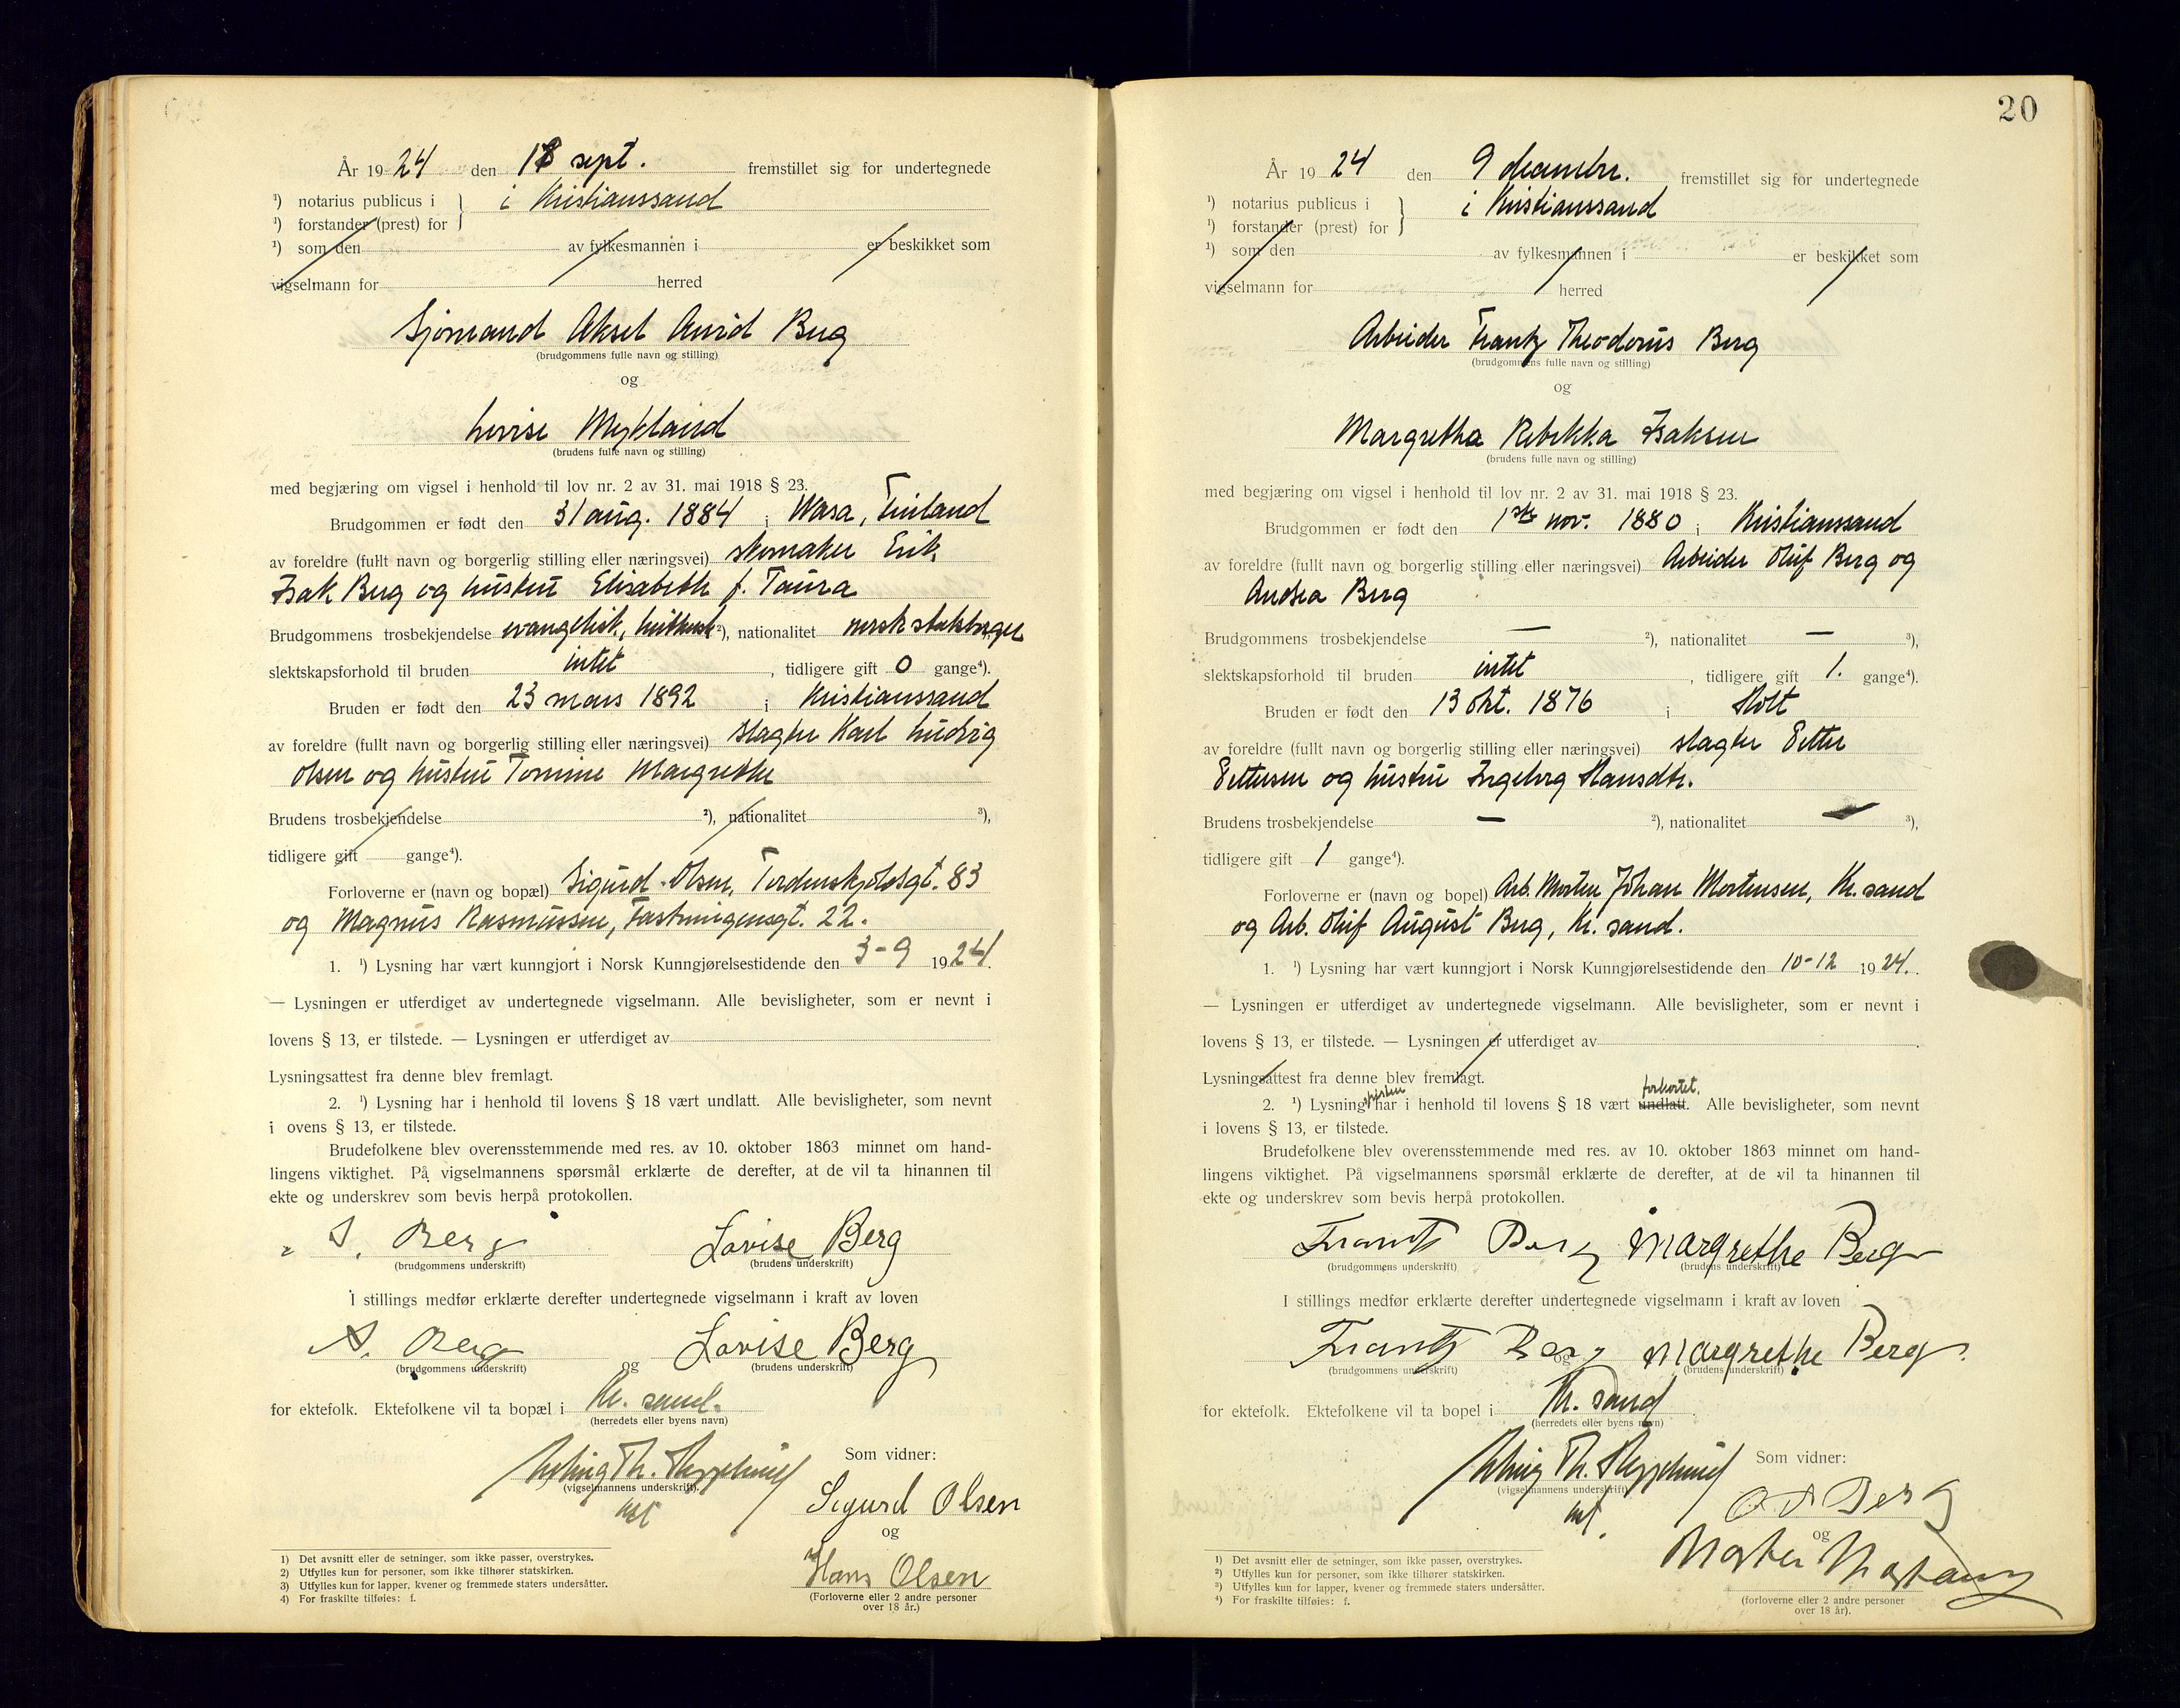 År 1924 den 18 sept. fremstillet sig for undertegnede
¹) notarius publicus i } i Kristianssand
¹) forstander (prest) for
¹) som den av fylkesmannen i er beskikket som
vigselmann for herred
Sjømand Aksel Arvid Berg
(brudgommens fulle navn og stilling)
og
Lovise Mykland
(brudens fulle navn og stilling)
med begjæring om vigsel i henhold til lov nr. 2 av 31. mai 1918 § 23.
Brudgommen er født den 31 aug. 1884 i Wasa, Finland
av foreldre (fullt navn og borgerlig stilling eller næringsvei) skomaker Erik
Isak Berg og hustru Elisabeth f. Taura
Brudgommens trosbekjendelse evangelisk, luthersk ²), nationalitet norsk statsborger
slektskapsforhold til bruden intet, tidligere gift 0 gange⁴).
Bruden er født den 23 mars 1892 i Kristianssand
av foreldre (fullt navn og borgerlig stilling eller næringsvei) slagter Karl Ludvig
Olsen og hustru Tomine Margrethe
Brudens trosbekjendelse ²), nationalitet ³),
tidligere gift gange⁴).
Forloverne er (navn og bopæl) Sigurd Olsen, Tordenskjoldsgt. 83
og Magnus Rasmussen, Fæstningensgt. 22.
1. ¹) Lysning har vært kunngjort i Norsk Kunngjørelsestidende den 3-9 1924.
— Lysningen er utferdiget av undertegnede vigselmann. Alle bevisligheter, som er nevnt i
lovens § 13, er tilstede. — Lysningen er utferdiget av
Lysningsattest fra denne blev fremlagt.
2. ¹) Lysning har i henhold til lovens § 18 vært undlatt. Alle bevisligheter, som nevnt
i ovens § 13, er tilstede.
Brudefolkene blev overensstemmende med res. av 10. oktober 1863 minnet om hand-
lingens viktighet. På vigselmannens spørsmål erklærte de derefter, at de vil ta hinannen til
ekte og underskrev som bevis herpå protokollen.
A. Berg Lovise Berg
(brudgommens underskrift) (brudens underskrift)
I stillings medfør erklærte derefter undertegnede vigselmann i kraft av loven
A. Berg og Lovise Berg
(brudgommens underskrift) (brudens underskrift)
for ektefolk. Ektefolkene vil ta bopæl i Kr. sand.
(herredets eller byens navn)
Som vidner:
(vigselmannens underskrift)
Sigurd Olsen
og
Hans Olsen
(Forloverne eller 2 andre personer
over 18 år.)
1) Det avsnitt eller de setninger, som ikke passer, overstrykes.
2) Utfylles kun for personer, som ikke tilhører statskirken.
3) Utfylles kun for lapper, kvener og fremmede staters undersåtter.
4) For fraskilte tilføies: f.
20
År 1924 den 9 december. fremstillet sig for undertegnede
¹) notarius publicus i } i Kristianssand
¹) forstander (prest) for
¹) som den av fylkesmannen i er beskikket som
vigselmann for herred
Arbeider Frantz Theodorus Berg
(brudgommens fulle navn og stilling)
og
Margretha Rebekka Isaksen
(brudens fulle navn og stilling)
med begjæring om vigsel i henhold til lov nr. 2 av 31. mai 1918 § 23.
Brudgommen er født den 1ste nov. 1880 i Kristianssand
av foreldre (fullt navn og borgerlig stilling eller næringsvei) Arbeider Oluf Berg og
Andrea Berg
Brudgommens trosbekjendelse — ²), nationalitet — ³),
slektskapsforhold til bruden intet, tidligere gift 1. gange⁴).
Bruden er født den 13 okt. 1876 i Holt
av foreldre (fullt navn og borgerlig stilling eller næringsvei) slagter Petter
Pettersen og hustru Ingeborg Hansdtr.
Brudens trosbekjendelse — ²), nationalitet — ³),
tidligere gift 1 gange⁴).
Forloverne er (navn og bopel) Arb. Morten Johan Mortensen, Kr. sand
og Arb. Oluf August Berg, Kr. sand.
1. ¹) Lysning har vært kunngjort i Norsk Kunngjørelsestidende den 10-12 1924.
— Lysningen er utferdiget av undertegnede vigselmann. Alle bevisligheter, som er nevnt i
lovens § 13, er tilstede. — Lysningen er utferdiget av
Lysningsattest fra denne blev fremlagt.
2. ¹) Lysning fristen har i henhold til lovens § 18 vært undlatt. forkortet. Alle bevisligheter, som nevnt
i lovens § 13, er tilstede.
Brudefolkene blev overensstemmende med res. av 10. oktober 1863 minnet om hand-
lingens viktighet. På vigselmannens spørsmål erklærte de derefter, at de vil ta hinannen til
ekte og underskrev som bevis herpå protokollen.
Frantz Berg Margrethe Berg
(brudgommens underskrift) (brudens underskrift)
I stillings medfør erklærte derefter undertegnede vigselmann i kraft av loven
Frantz Berg og Margrethe Berg.
(brudgommens underskrift) (brudens underskrift)
for ektefolk. Ektefolkene vil ta bopel i Kr. sand
(herredets eller byens navn)
Som vidner:
(vigselmannens underskrift)
O A Berg
og
Morten Mortensen
(forloverne eller 2 andre personer
over 18 år).
¹) Det avsnitt eller de setninger, som ikke passer, overstrykes.
²) Utfylles kun for personer, som ikke tilhører statskirken.
³) Utfylles kun for lapper, kvener og fremmede staters undersåtter.
⁴) For fraskilte tilføies: f.